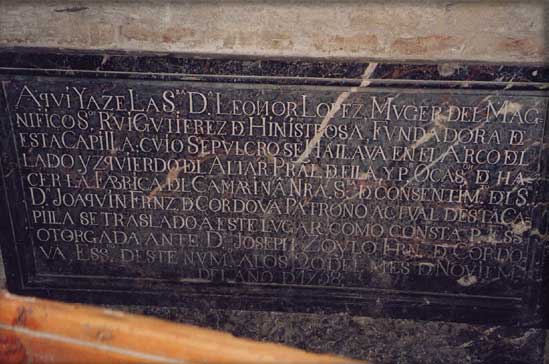 AQVI YAZE LA S.ᴿᴬ D.ᴬ LEONOR LOPEZ, MVGER DEL MAG
NIFICO S.ᴿ RVI GVTIERREZ D HINISTROSA, FVNDADORA D
ESTA CAPILLA: CVIO SEPVLCRO SE HALLAVA EN EL ARCO DL
LADO YZQVIERDO DL ALTAR PRAL DE ELLA Y P.ᴿ OCAS.ᴺ D HA
CER LA FABRICA DL CAMARIN A NRA. S.ᴿᴬ D CONSENTIM.ᵀᴼ DL S.ᴿ
D. JOAQVIN FRNZ D CORDOVA PATRONO ACTVAL DESTA CA
PILLA SE TRASLADO A ESTE LVGAR COMO CONSTA P.ᴿ ESS.ᴬ
OTORGADA ANTE D. JOSEPH D CORDO
VA ESS. DESTE NVM. A LOS 20 DEL MES D NOVIEM
DEL AÑO D